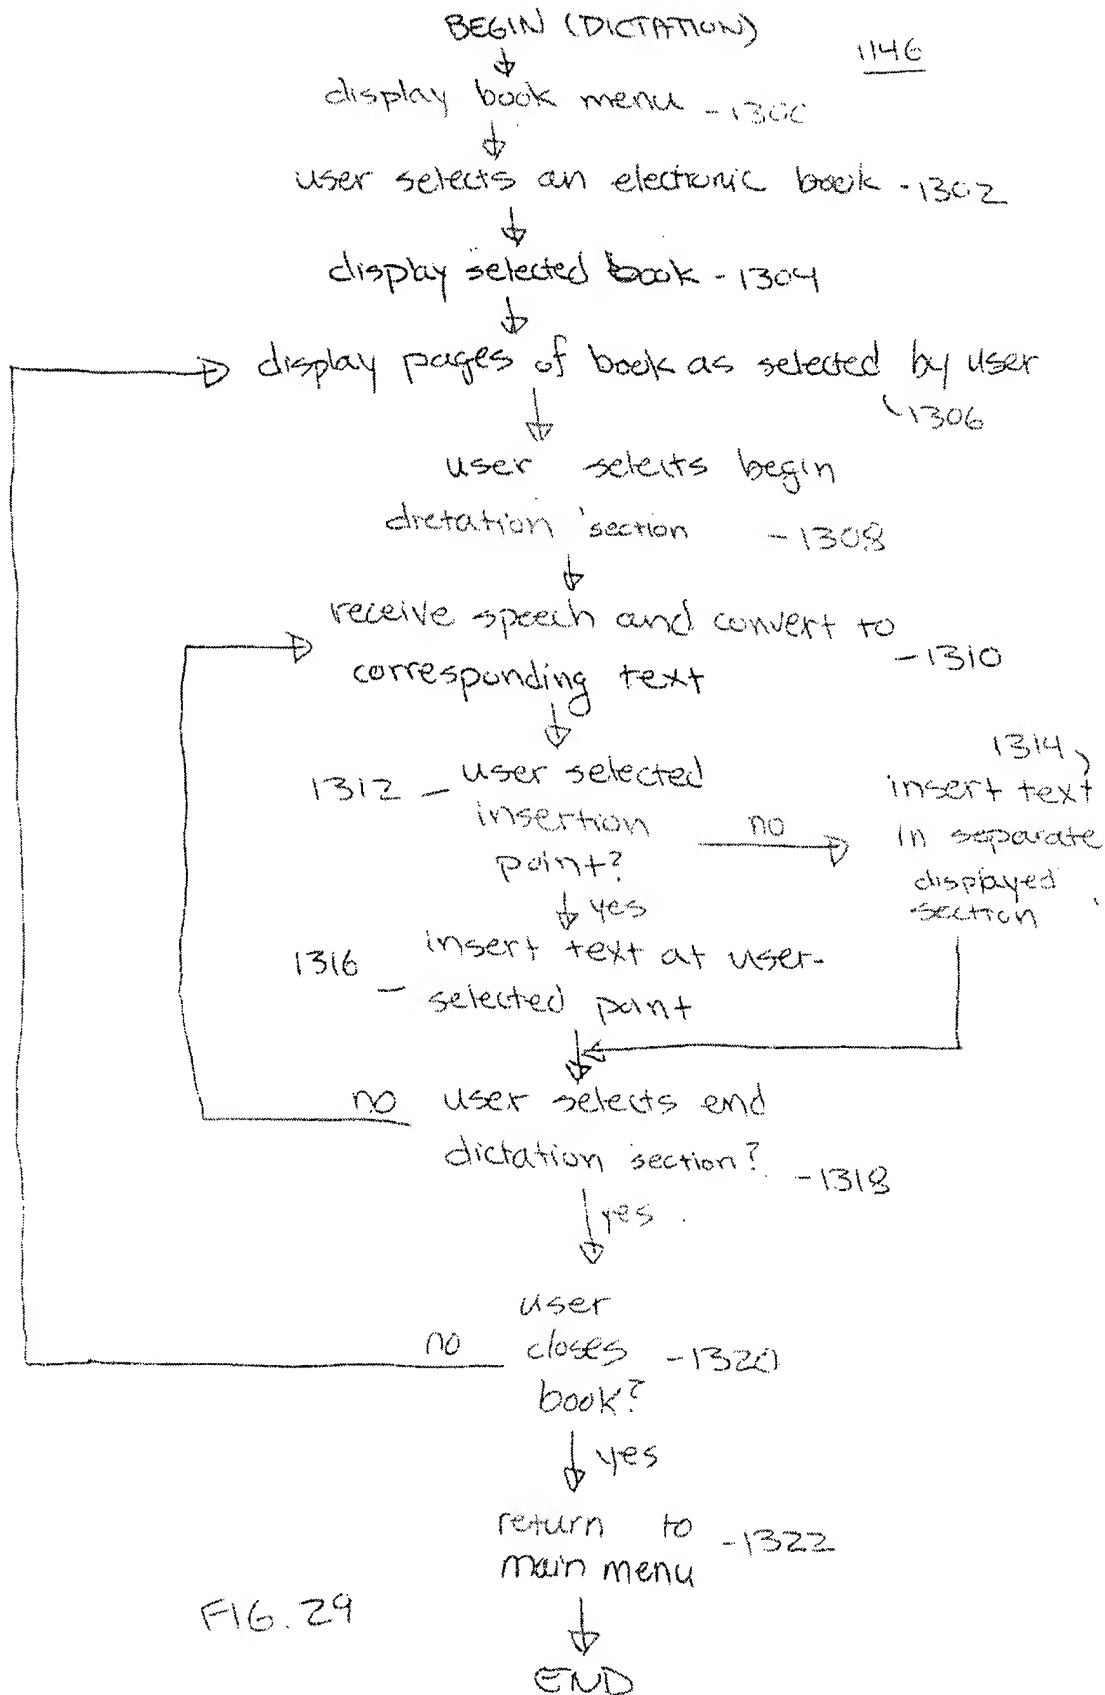 BEGIN (DICTATION)
1146
display book menu - 1300
user selects an electronic book - 1302
display selected book - 1304
display pages of book as selected by user
1306
user selects begin
dictation section - 1308
receive speech and convert to
- 1310
corresponding text
1312 - user selected
insertion
point?
no
1314
insert text
in separate
displayed
section
yes
1316 - insert text at user-
selected point
no user selects end
dictation section? - 1318
yes
user
no closes - 1320
book?
yes
return to
main menu - 1322
FIG. 29
END